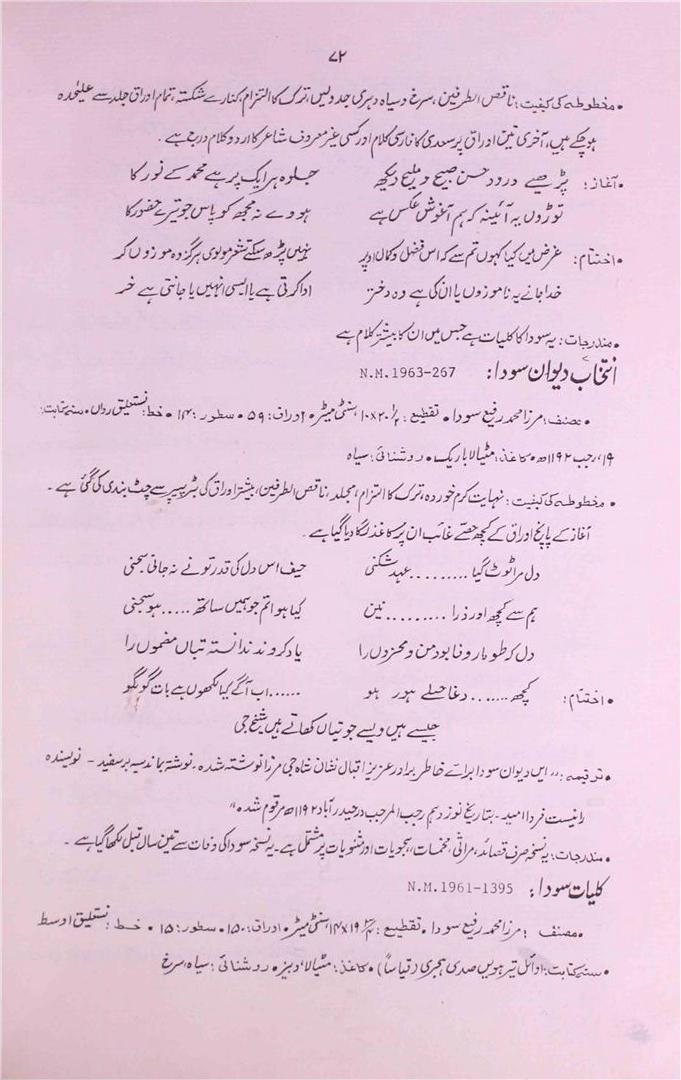 ۷۲
• مخطوطہ کی کیفیت: ناقص الطرفین، سرخ و سیاہ دہری جدولیں، ترک کا التزام، کنارے شکستہ، تمام اوراق جلد سے علیٰحدہ
ہو چکے ہیں، آخری تین اوراق پر سعدی کا فارسی کلام اور کسی غیر معروف شاعر کا اردو کلام درج ہے۔
• آغاز: پڑھیے درود حسن صبیح و ملیح دیکھ جلوہ ہر ایک پر ہے محمد کے نور کا
توڑوں یہ آئینہ کہ ہم آغوش عکس ہے ہووے نہ مجھ کو پاس جو تیرے حضور کا
• اختتام: غرض میں کیا کہوں تم سے کہ اس فضل و کمال اوپر نہیں پڑھ سکتے شعر مولوی ہرگز وہ موزوں کر
خدا جانے یہ ناموزوں یا ان کی ہے وہ دختر ادا کرتی ہے یا ایسی انہیں یا جانتی ہے خر
• مندرجات: یہ سودا کا کلیات ہے جس میں ان کا بیشتر کلام ہے
انتخاب دیوان سودا: N.M.1963-267
• مصنف: مرزا محمد رفیع سودا • تقطیع: ۲۰½×۱۰ سنٹی میٹر • اوراق: ۵۹ • سطور: ۱۴ • خط: نستعلیق رواں • سنہ کتابت:
۱۹، رجب ۱۱۹۲ھ • کاغذ: مٹیالا باریک • روشنائی: سیاہ
• مخطوطہ کی کیفیت: نہایت کرم خوردہ، ترک کا التزام، مجلد، ناقص الطرفین، بیشتر اوراق کی بٹر پیپر سے چٹ بندی کی گئی ہے۔
آغاز کے پانچ اوراق کے کچھ حصے غائب ان پر کاغذ لگا دیا گیا ہے۔
دل مرا ٹوٹ گیا ......... عہد شکنی حیف اس دل کی قدر تو نے نہ جانی سجنی
ہم سے کچھ اور ذرا ......... نین کیا ہوا تم جو ہمیں ساتھ ..... ہو سجنی
دل کہ طومار وفا بود من و محزوں را یاد کروند ندانستہ تباں مضموں را
• اختتام: کچھ ....... دغا حیلے ہور ہو ...... اب آگے کیا لکھوں ہے بات گو نگو
جیسے ہیں ویسے جوتیاں کھاتے ہیں شیخ جی
• ترقیمہ: "ایں دیوان سودا برائے خاطر برادر عزیز اقبال نشان شاہ جی مرزا نوشتہ شدہ۔ نوشتہ بماند سیہ بر سفید - نویسندہ
را نیست فردا امید۔ بتاریخ نوزدہم رجب المرجب در حیدرآباد ۱۱۹۲ھ مرقوم شدہ"
• مندرجات: یہ نسخہ صرف قصائد، مراثی، مخمسات، ہجویات اور مثنویات پر مشتمل ہے۔ یہ نسخہ سودا کی وفات سے تین سال قبل لکھا گیا ہے۔
کلیات سودا: N.M.1961-1395
• مصنف: مرزا محمد رفیع سودا • تقطیع: ۱۹×۱۴ سنٹی میٹر • اوراق: ۱۵۰ • سطور: ۱۵ • خط: نستعلیق اوسط
• سنہ کتابت: اوائل تیرہویں صدی ہجری (قیاساً) • کاغذ: مٹیالا دبیز • روشنائی: سیاہ، سرخ